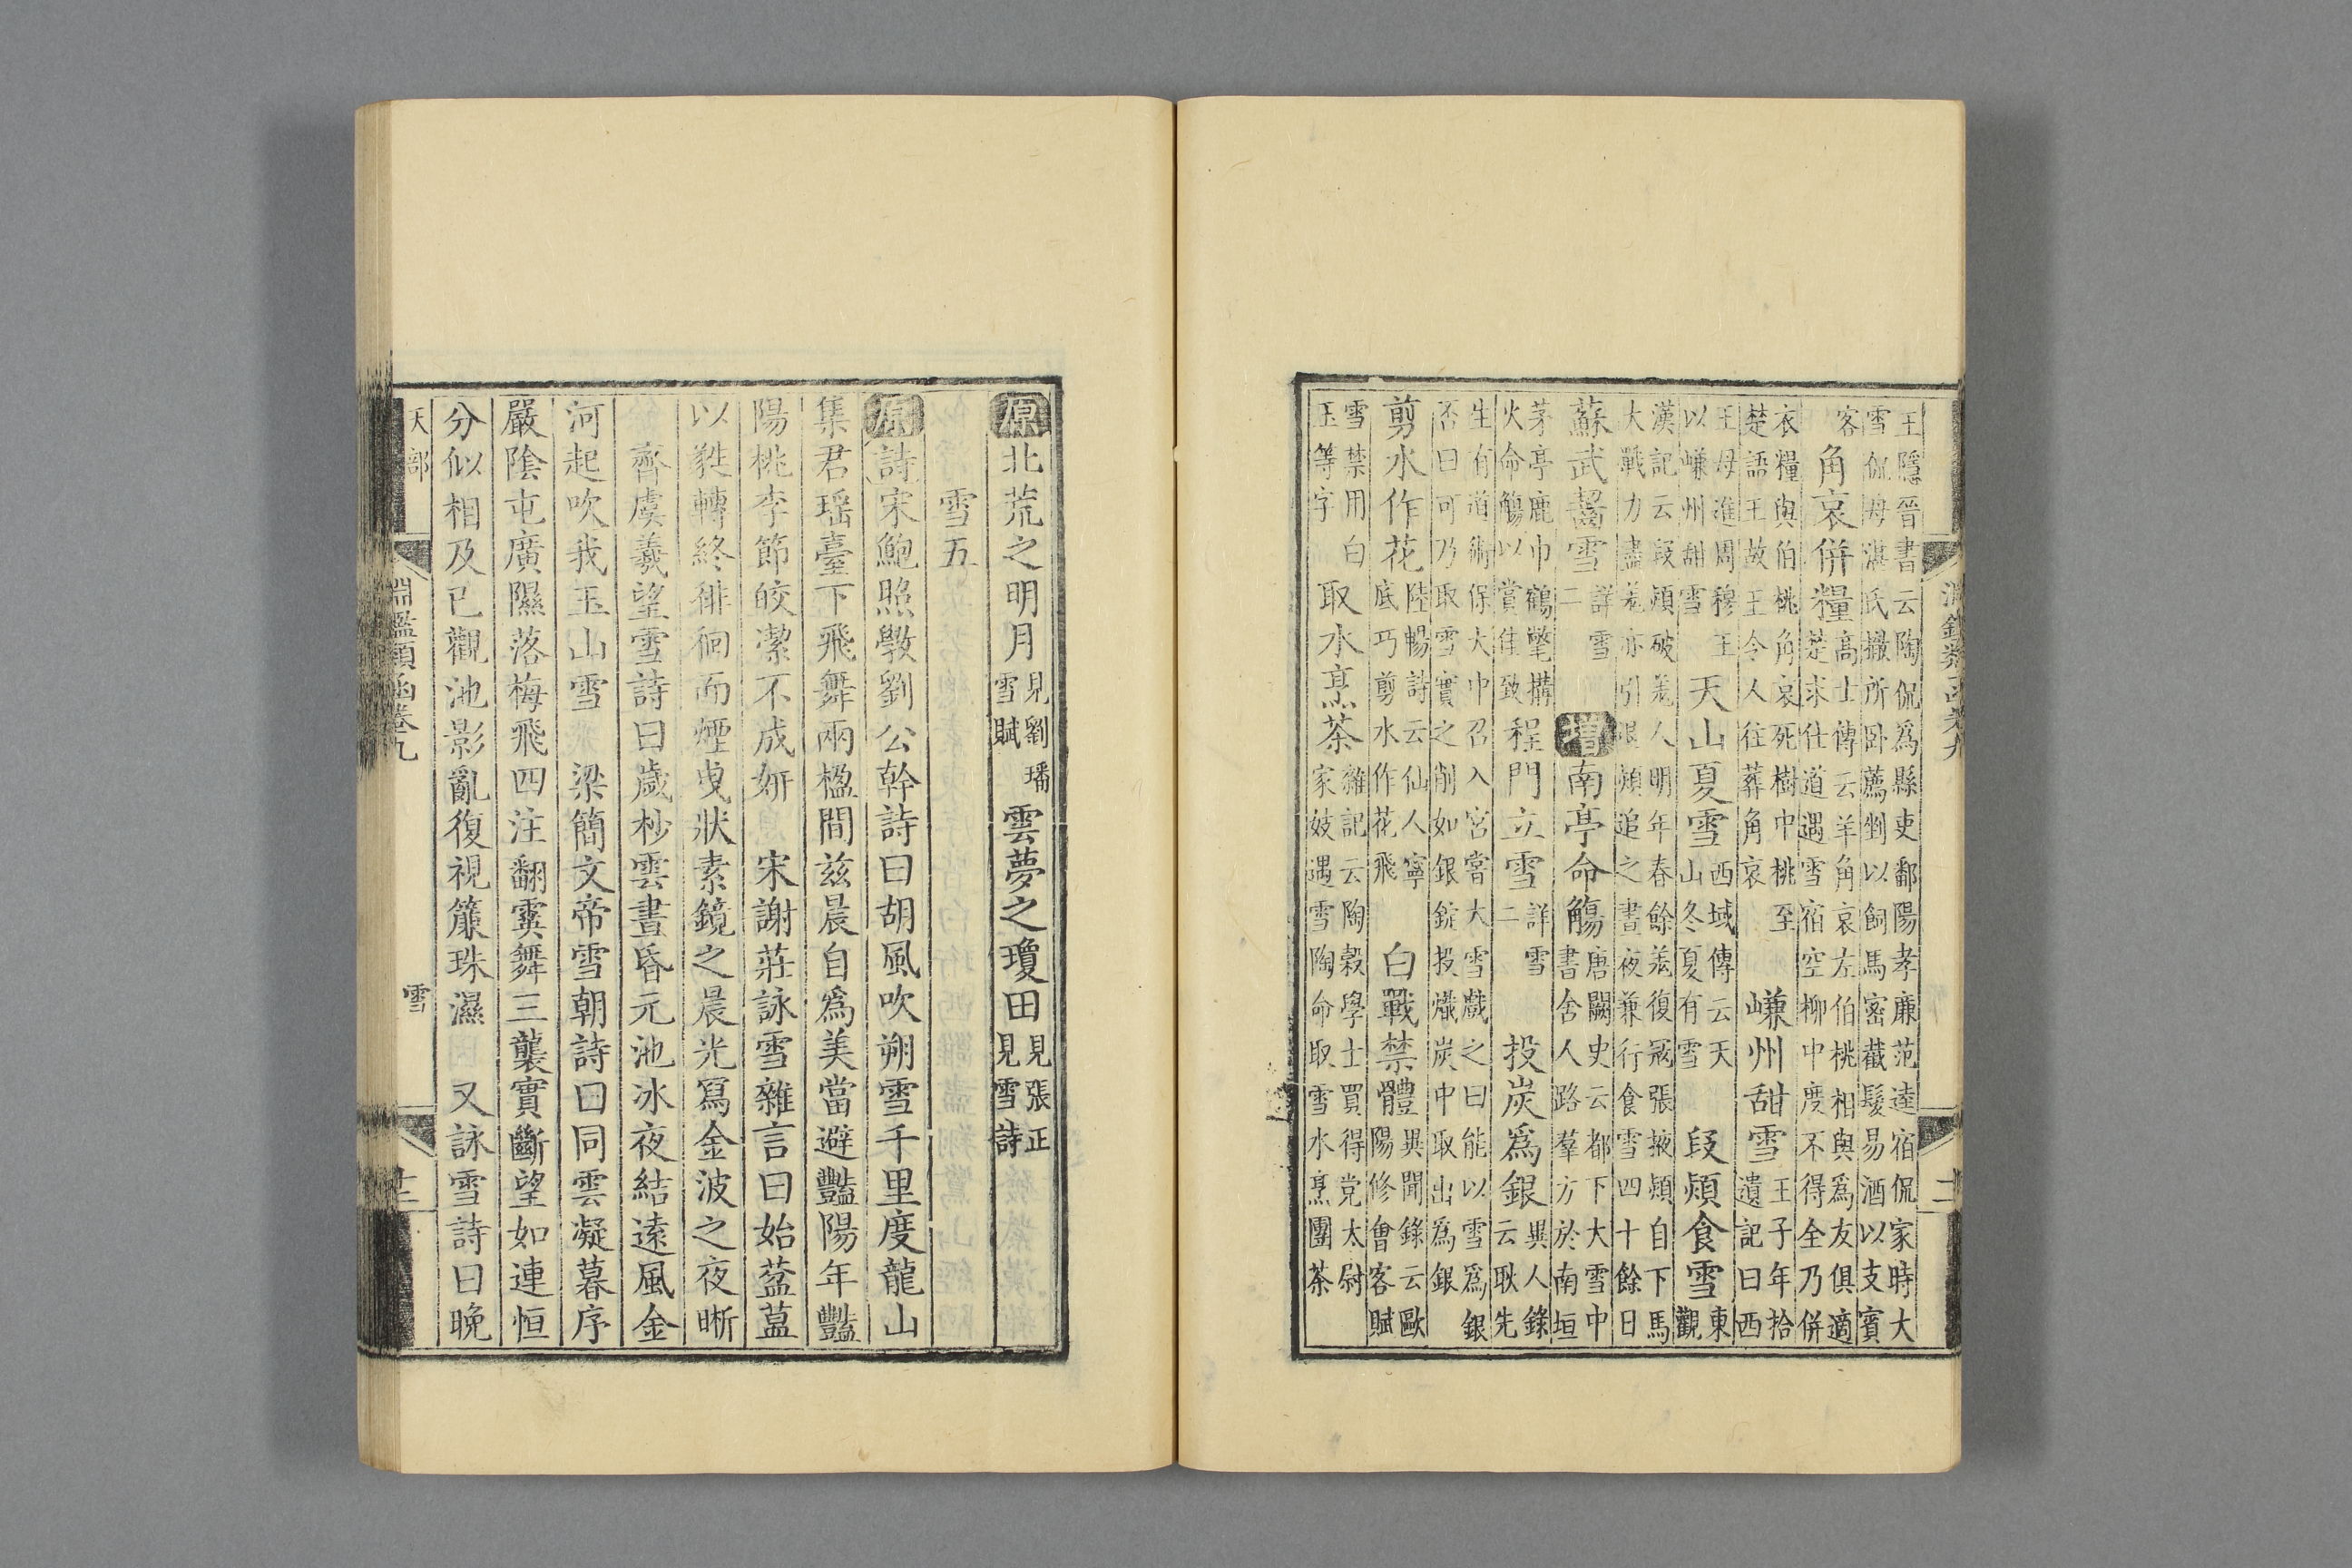 淵鑑類函卷九
王隱晉書云陶侃爲縣吏鄱陽孝廉范逵宿侃家時大
雪侃母湛氏撤所卧薦剉以飼馬密截髮易酒以支賓
客 角哀併糧 高士傳云羊角哀左伯桃相與爲友俱適
楚求仕道遇雪宿空柳中度不得全乃併
衣糧與伯桃角哀死樹中桃至
楚語王故王令人往葬角哀 嵰州甜雪 王子年拾
遺記曰西
王母進周穆王
以嵰州甜雪 天山夏雪 西域傳云天
山冬夏有雪 段熲食雪 東
觀
漢記云段熲破羗人明年春餘羗復寇張掖熲自下馬
大戰力盡羗亦引退熲追之晝夜兼行食雪四十餘日
蘇武齧雪 詳雪
二 增 南亭命觴 唐闕史云都下大雪中
書舍人路羣方於南垣
茅亭鹿巾鶴氅搆
火命觴以賞佳致 程門立雪 詳雪
二 投炭爲銀 異人錄
云耿先
生有道術保大中召入宮嘗大雪戲之曰能以雪爲銀
否曰可乃取雪實之削如銀錠投熾炭中取出爲銀
剪水作花 陸暢詩云仙人寧
底巧剪水作花飛 白戰禁體 異聞錄云歐
陽修會客賦
雪禁用白
玉等字 取水烹茶 雜記云陶穀學士買得党太尉
家妓遇雪陶命取雪水烹團茶
原 北荒之明月 見劉璠
雪賦 雲夢之瓊田 見張正
見雪詩
雪五
原 詩 宋鮑照斆劉公幹詩曰胡風吹朔雪千里度龍山
集君瑤臺下飛舞兩楹間兹晨自爲美當避豔陽年豔
陽桃李節皎潔不成妍 宋謝莊詠雪雜言曰始葢薀
以㲝轉終徘徊而煙曳狀素鏡之晨光寫金波之夜晰
齊虞羲望雪詩曰歲杪雲晝昏元池冰夜結遠風金
河起吹我玉山雪 梁簡文帝雪朝詩曰同雲凝暮序
嚴陰屯廣隰落梅飛四注翻霙舞三襲實斷望如連恒
分似相及已觀池影亂復視簾珠濕 又詠雪詩曰晚
天部
淵鑑類函卷九
雪